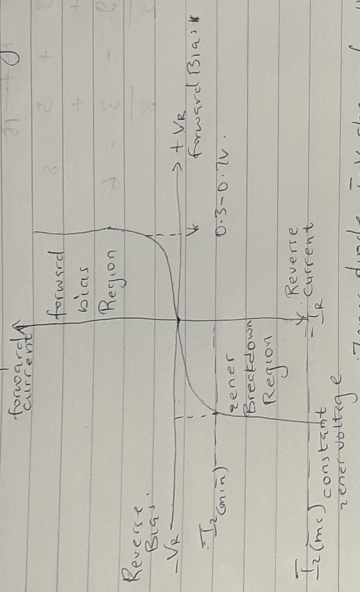 forward
current
forward
bias
Region
→ + VR
forward Bias
0.3-0.7V.
Reverse
Bias.
-VR
Iz(min)
zener
Breakdown
Region
Reverse
current
-IR
Iz(mc) constant
zener voltage